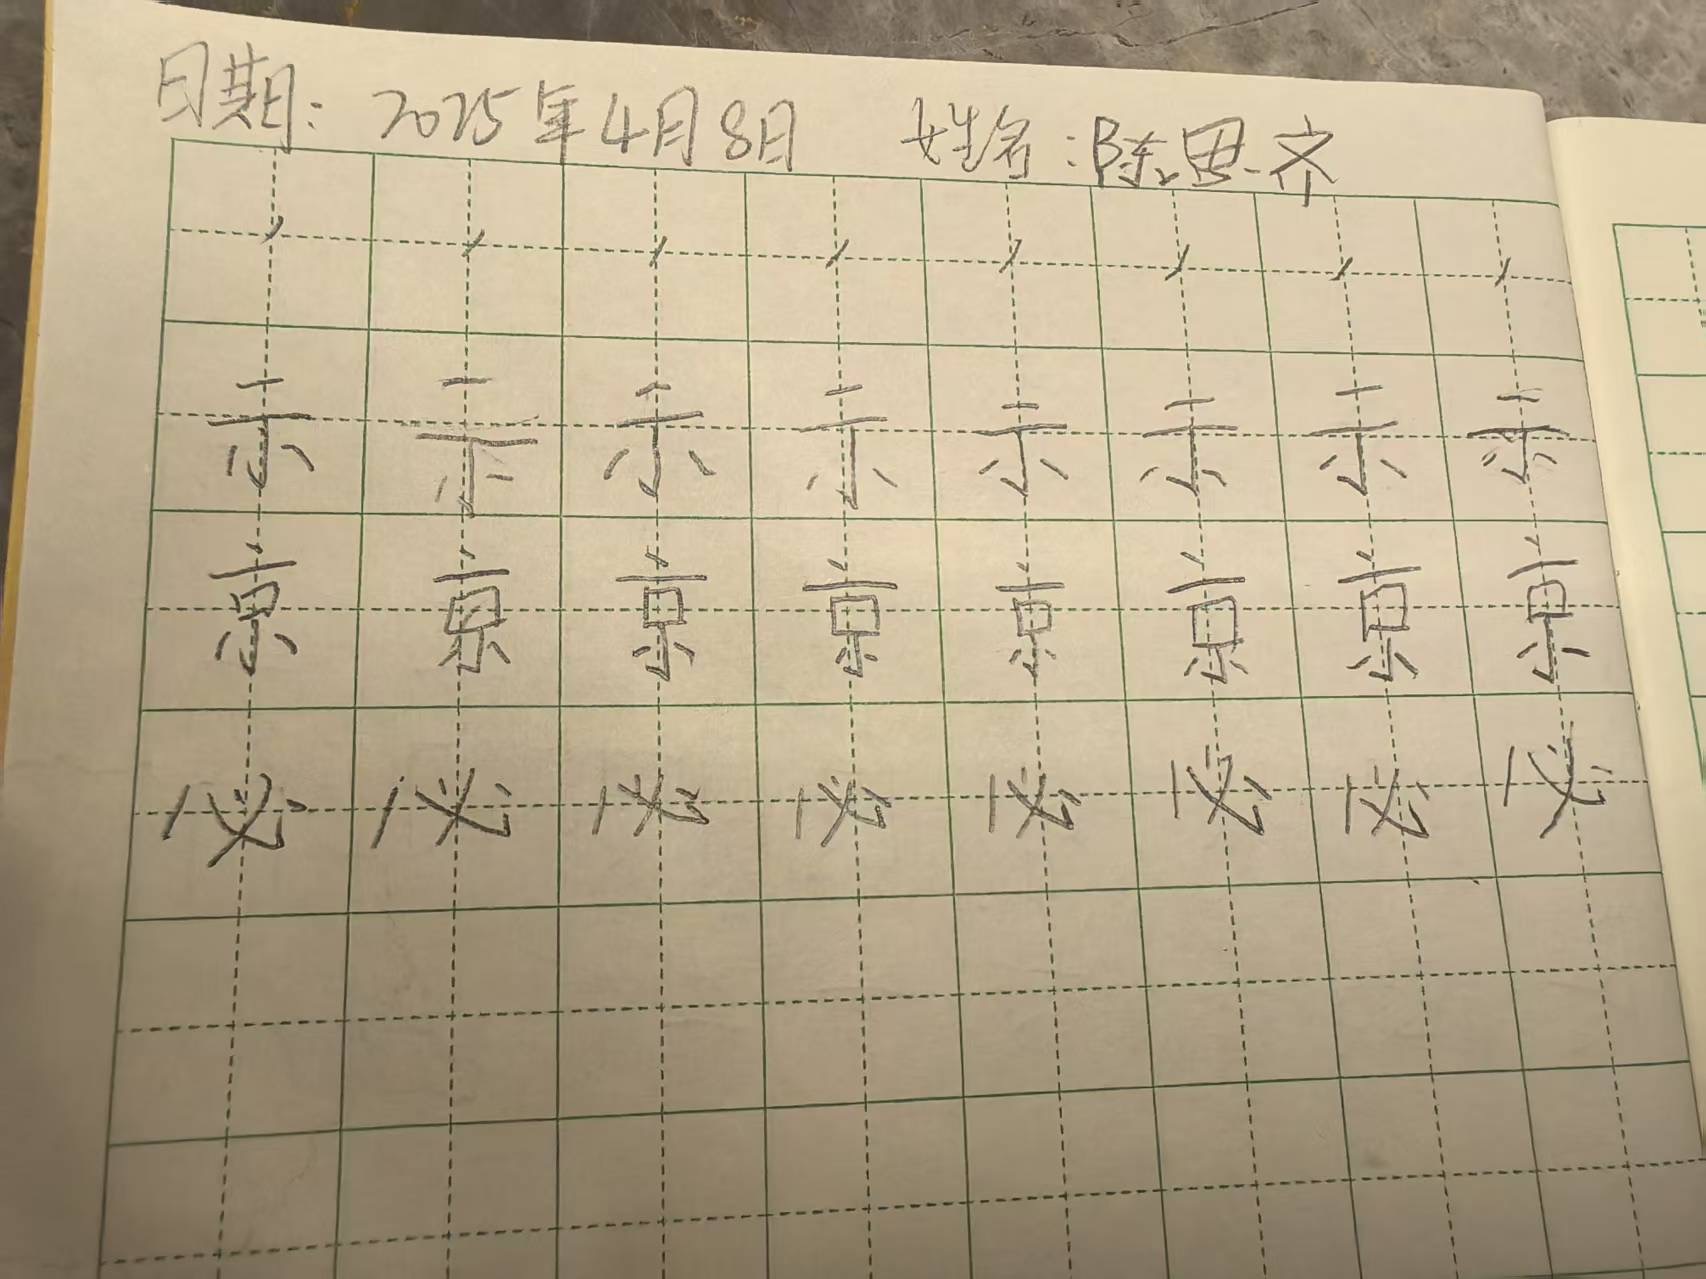 日期：2025年4月8日 姓名：陈思齐
丶丶丶丶丶丶丶丶
示示示示示示示示
京京京京京京京京
必必必必必必必必